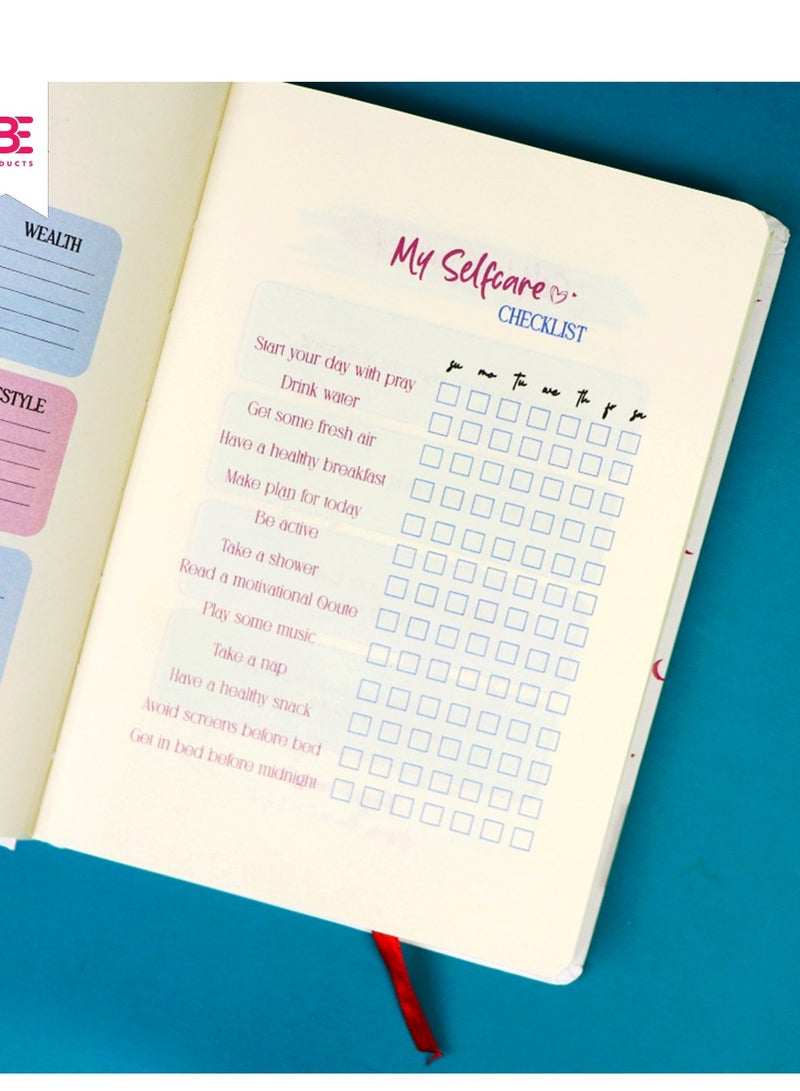 BE
DUCTS
WEALTH
STYLE
My Selfcare
CHECKLIST
su mo tu we th fr sa
Start your day with pray
Drink water
Get some fresh air
Have a healthy breakfast
Make plan for today
Be active
Take a shower
Read a motivational Qoute
Play some music
Take a nap
Have a healthy snack
Avoid screens before bed
Get in bed before midnight